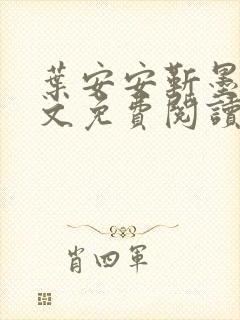 葉安安靳墨
文免費閱讀
肖四軍